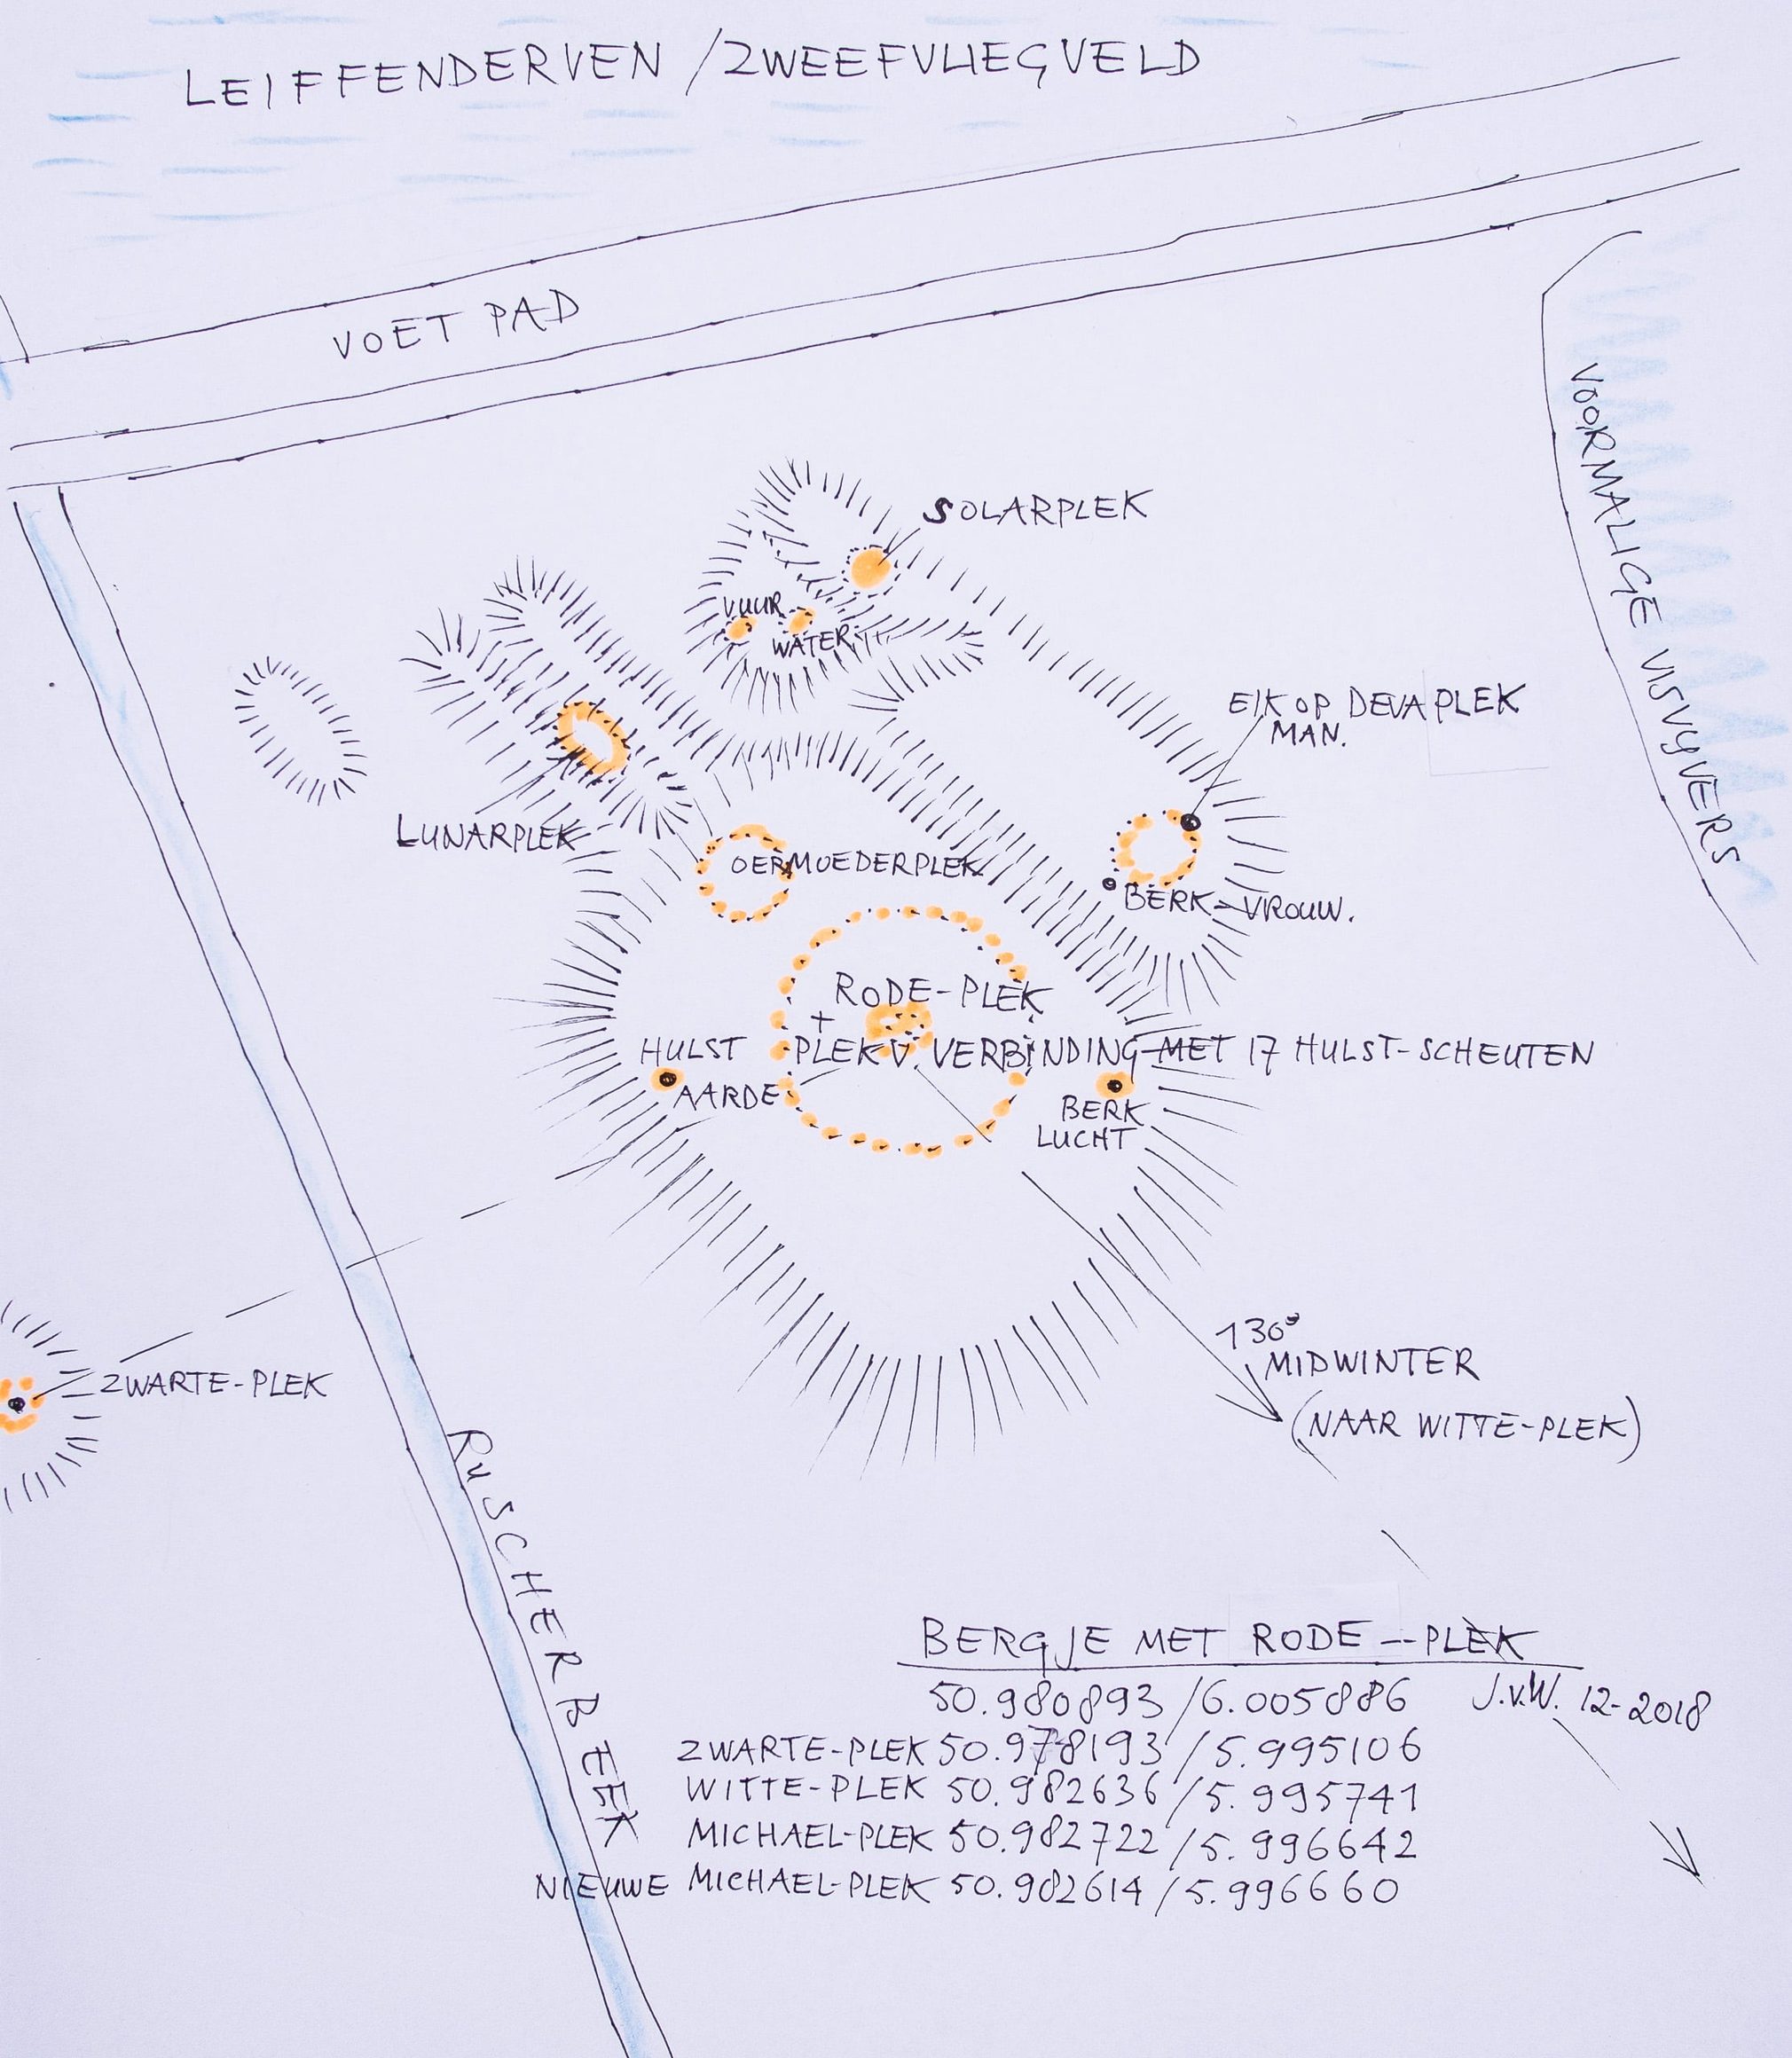 LEIFFENDERVEN / ZWEEFVLIEGVELD
VOET PAD
VOORMALIGE VISVYVERS
SOLARPLEK
VUUR
WATER
EIK OP DEVAPLEK
MAN.
LUNARPLEK
OERMOEDERPLEK
BERK-VROUW.
RODE-PLEK
+
HULST
PLEK V. VERBINDING MET 17 HULST-SCHEUTEN
AARDE
BERK
LUCHT
130°
MIDWINTER
(NAAR WITTE-PLEK)
ZWARTE-PLEK
RUSCHERBEEK
BERGJE MET RODE--PLEK
50.980893 / 6.005886 J.v.W. 12-2018
ZWARTE-PLEK 50.978193 / 5.995106
WITTE-PLEK 50.982636 / 5.995741
MICHAEL-PLEK 50.982722 / 5.996642
NIEUWE MICHAEL-PLEK 50.982614 / 5.996660